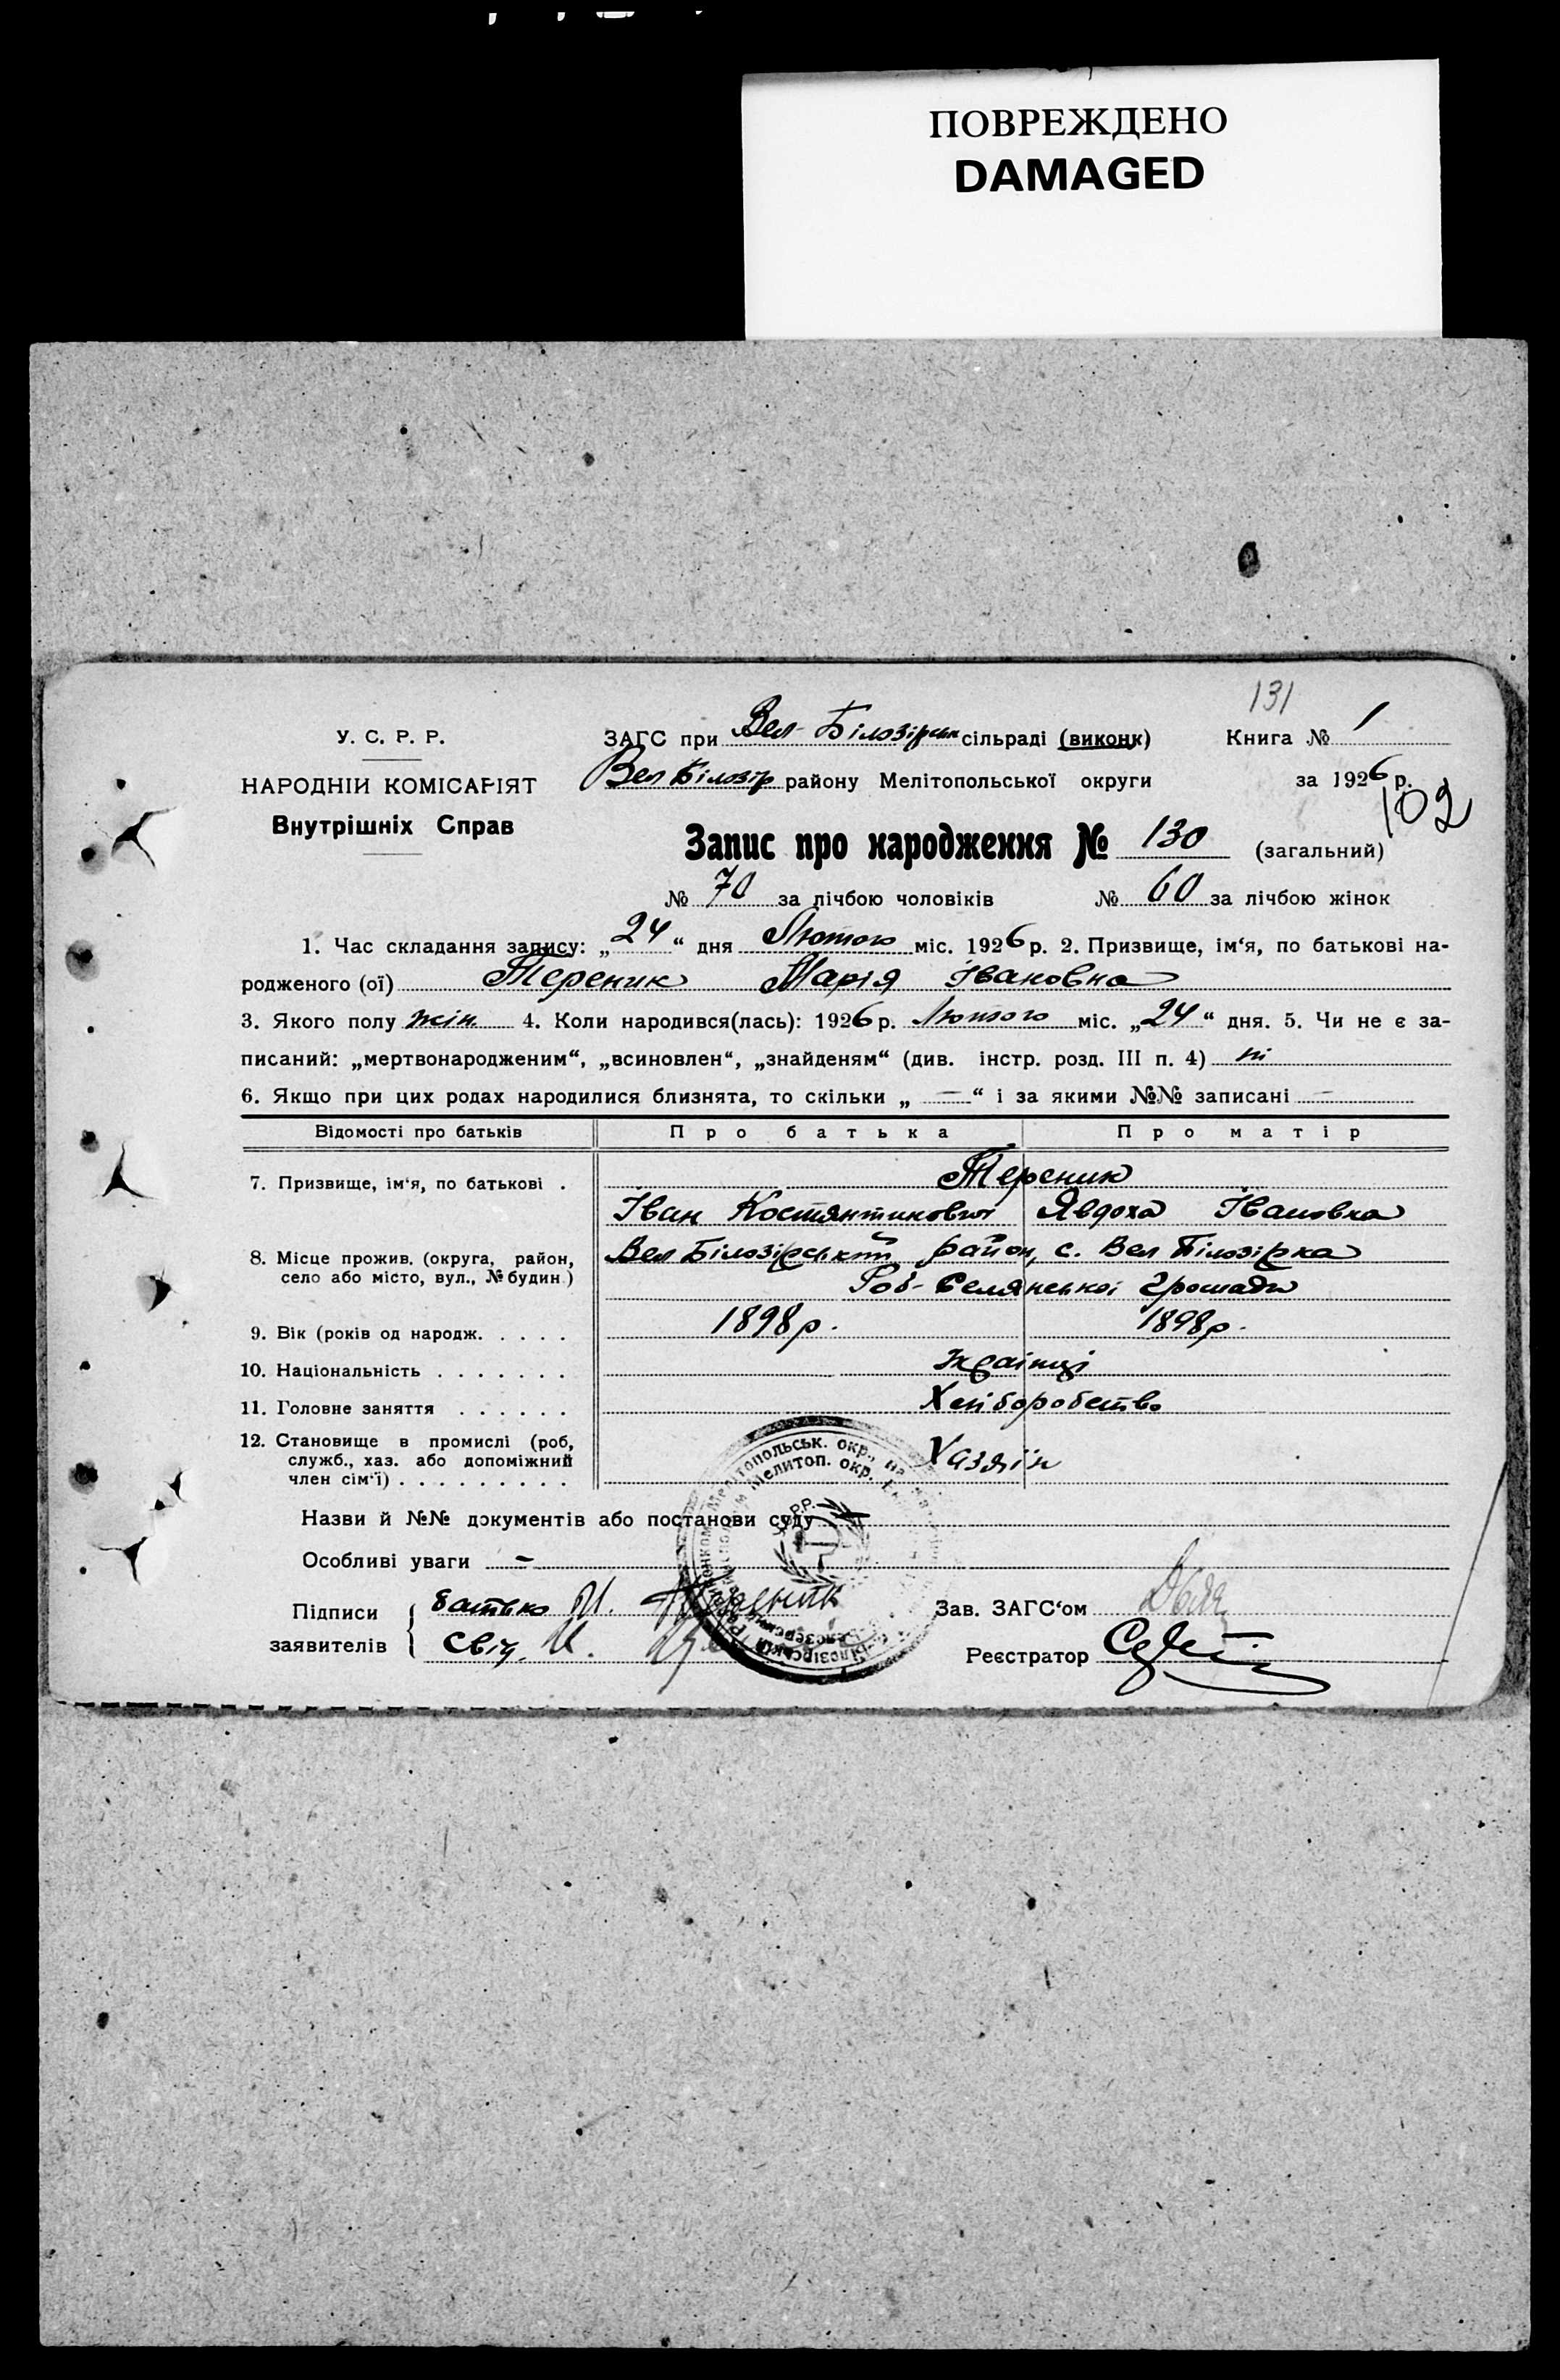 ПОВРЕЖДЕНО
DAMAGED
131
У. С. Р. Р.
НАРОДНІЙ КОМІСАРІЯТ
Внутрішніх Справ
ЗАГС при Вел-Білозірськ сільраді (виконк) Книга № 1
Вел Білозір району Мелітопольської округи за 1926 р.
102
Запис про народження № 130 (загальний)
№ 70 за лічбою чоловіків № 60 за лічбою жінок
1. Час складання запису: „24“ дня Лютого міс. 1926 р. 2. Призвище, ім‘я, по батькові на-
родженого (ої) Тереник Марія Івановна
3. Якого полу жін. 4. Коли народився(лась): 1926 р. Лютого міс. „24“ дня. 5. Чи не є за-
писаний: „мертвонародженим“, „всиновлен“, „знайденям“ (див. інстр. розд. III п. 4) ні
6. Якщо при цих родах народилися близнята, то скільки „ — “ і за якими №№ записані —
Відомості про батьків Про батька Про матір
7. Призвище, ім‘я, по батькові . Тереник
Іван Костянтинович Явдоха Івановна
8. Місце прожив. (округа, район, Вел Білозірський район, с. Вел Білозірка
село або місто, вул., № будин.) Роб-Селянської громади
9. Вік (років од народж. . . . . 1898 р. 1898 р.
10. Національність . . . . . . . Українці
11. Головне заняття . . . . . . Хліборобство
12. Становище в промислі (роб,
служб., хаз. або допоміжний Хазяїн
член сім‘ї) . . . . . . . . .
Назви й №№ документів або постанови суду —
Особливі уваги —
Підписи батько И. Тереник Зав. ЗАГС‘ом
заявителів свід. И. Реєстратор
Мелітопольськ. окр.,
Мелитоп. окр.